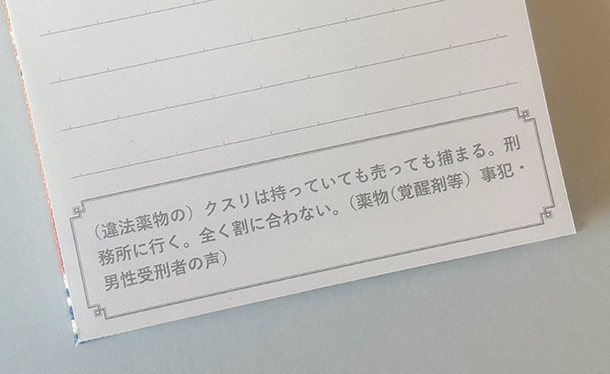 （違法薬物の）クスリは持っていても売っても捕まる。刑
務所に行く。全く割に合わない。（薬物（覚醒剤等）事犯・
男性受刑者の声）